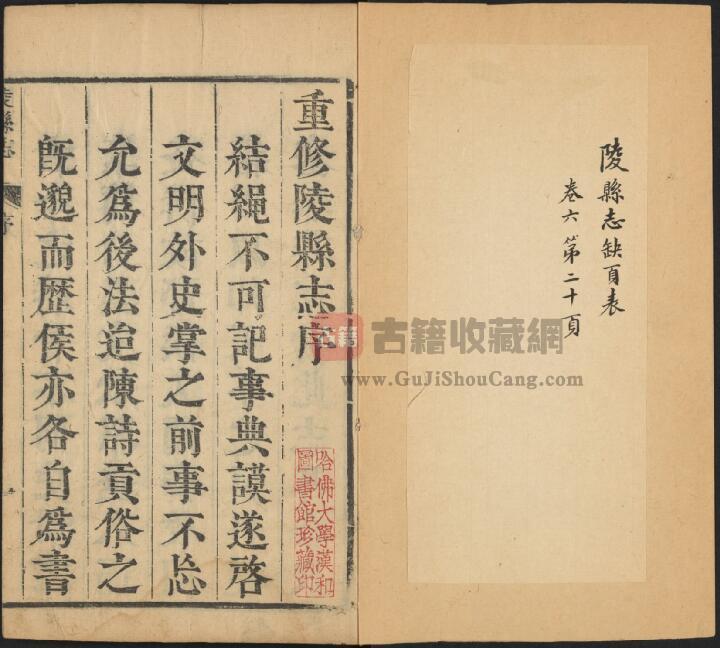 陵縣志缺頁表
卷六第二十頁
重修陵縣志序
結繩不可記事典謨遂啓
文明外史掌之前事不忘
允爲後法迨陳詩貢俗之
旣邈而歷侯亦各自爲書
陵縣志
序
哈佛大學漢和
圖書館珍藏印
古籍
古籍收藏網
www.GuJiShouCang.com